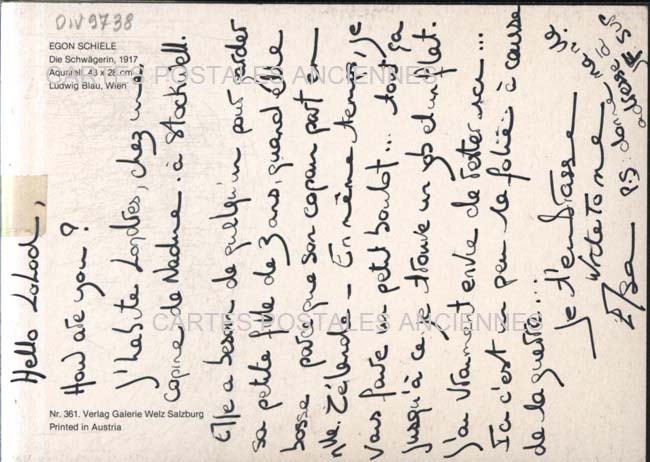 DIV9738
EGON SCHIELE
Die Schwägerin, 1917
Aquarell, 48 x 28 cm
Ludwig Blau, Wien
CARTES POSTALES ANCIENNES
Hello
How are you?
J'habite Londres, chez une
copine de Nadine à Stockwell.
Elle a besoin de quelqu'un pour garder
sa petite fille de 3 ans, quand elle
bosse parce que son copain part en
Nlle Zélande - En même temps, je
vais faire un petit boulot... tout ça
jusqu'à ce je trouve un job et un flat.
J'ai vraiment envie de rester ici...
Ici c'est un peu la folie... à cause
de la guerre...
Je t'embrasse
Write to me
PS: donne
adresse
CARTES POSTALES ANCIENNES
Nr. 361. Verlag Galerie Welz Salzburg
Printed in Austria